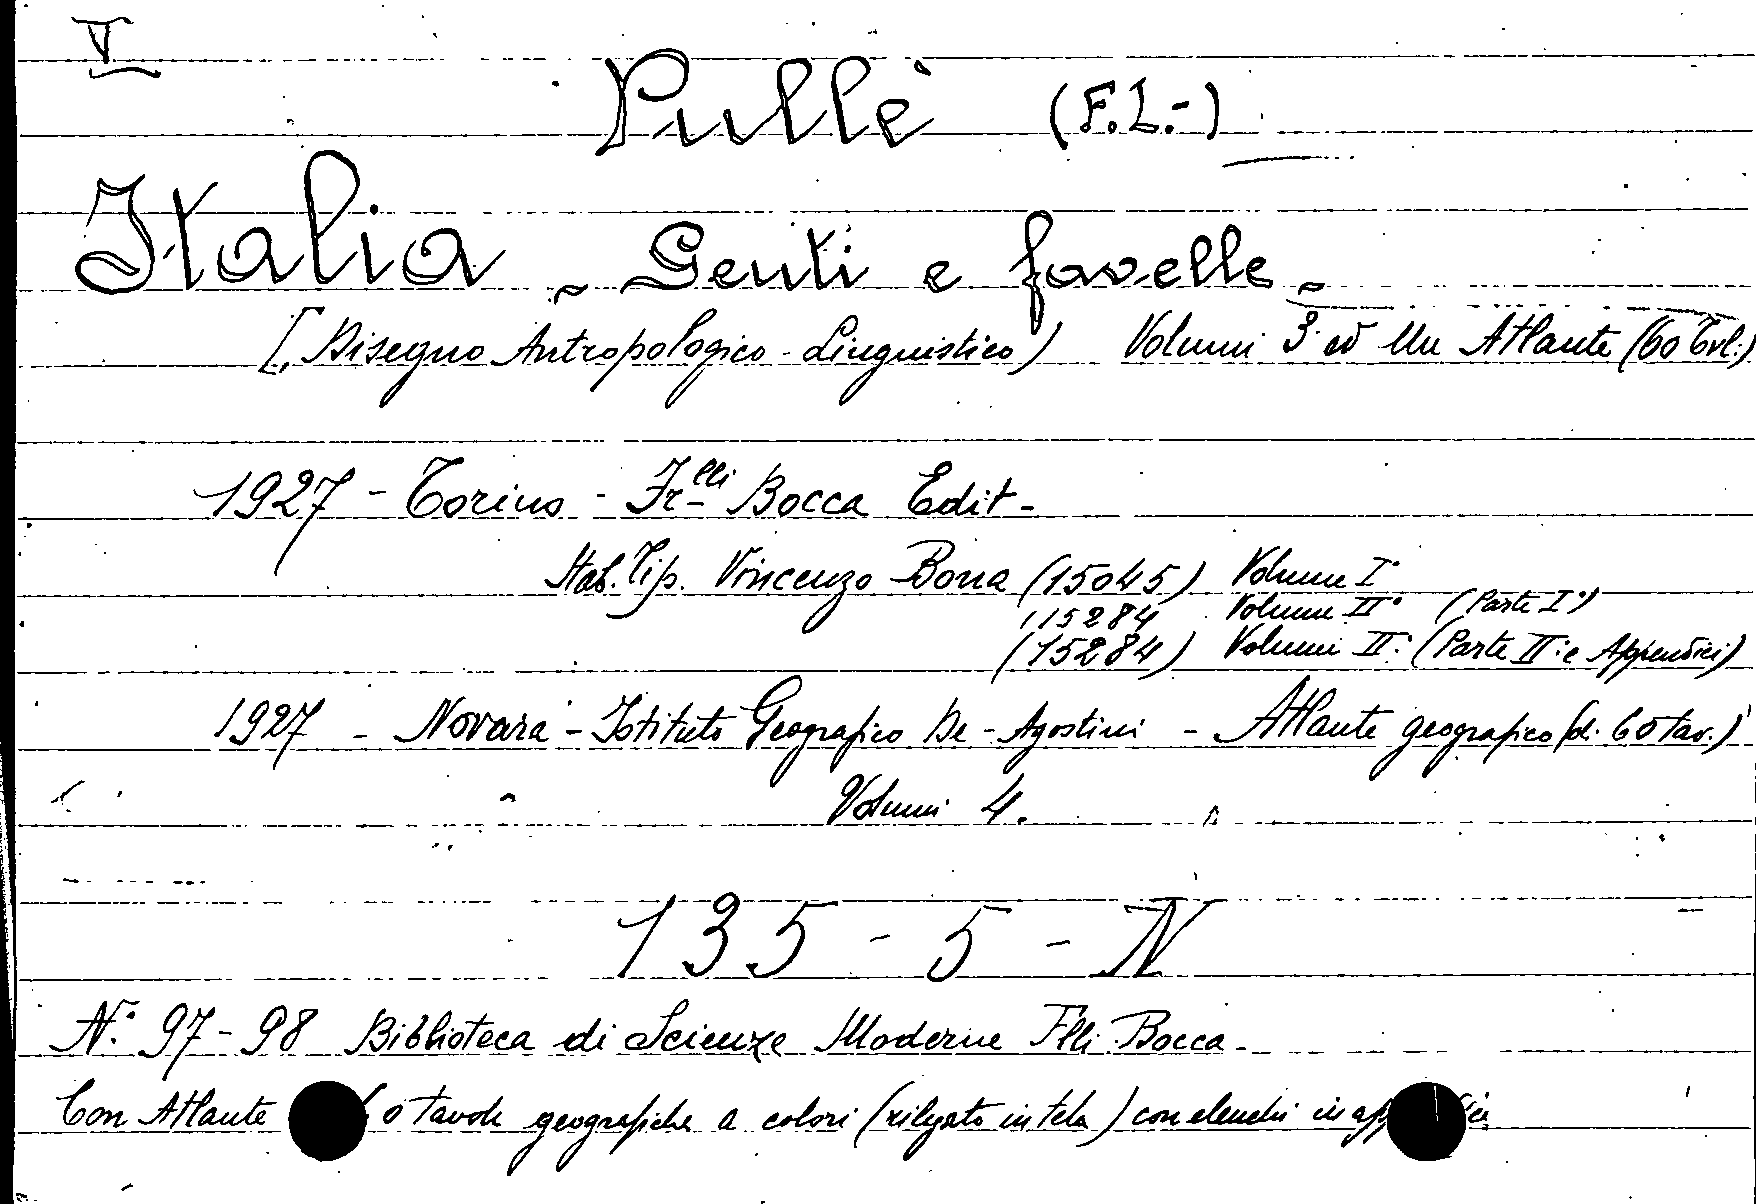 V
Pullè (F.L.-)
Italia - Genti e favelle -
[(Disegno Antropologico - Linguistico) Volumi 3 ed Un Atlante (60 Tvl.)
1927 - Torino - Fr.lli Bocca Edit -
Stab. Tip. Vincenzo Bona (15045) Volume I°
(15284 Volume II° (Parte I°)
(15284) Volumi II° (Parte II° e Appendici)
1927 - Novara - Istituto Geografico De - Agostini - Atlante geografico (di 60 tav.)
Volumi 4.
135 - 5 - N
N.° 97 - 98 Biblioteca di Scienze Moderne F.lli Bocca -
Con Atlante 60 tavole geografiche a colori (rilegato in tela) con elenchi in